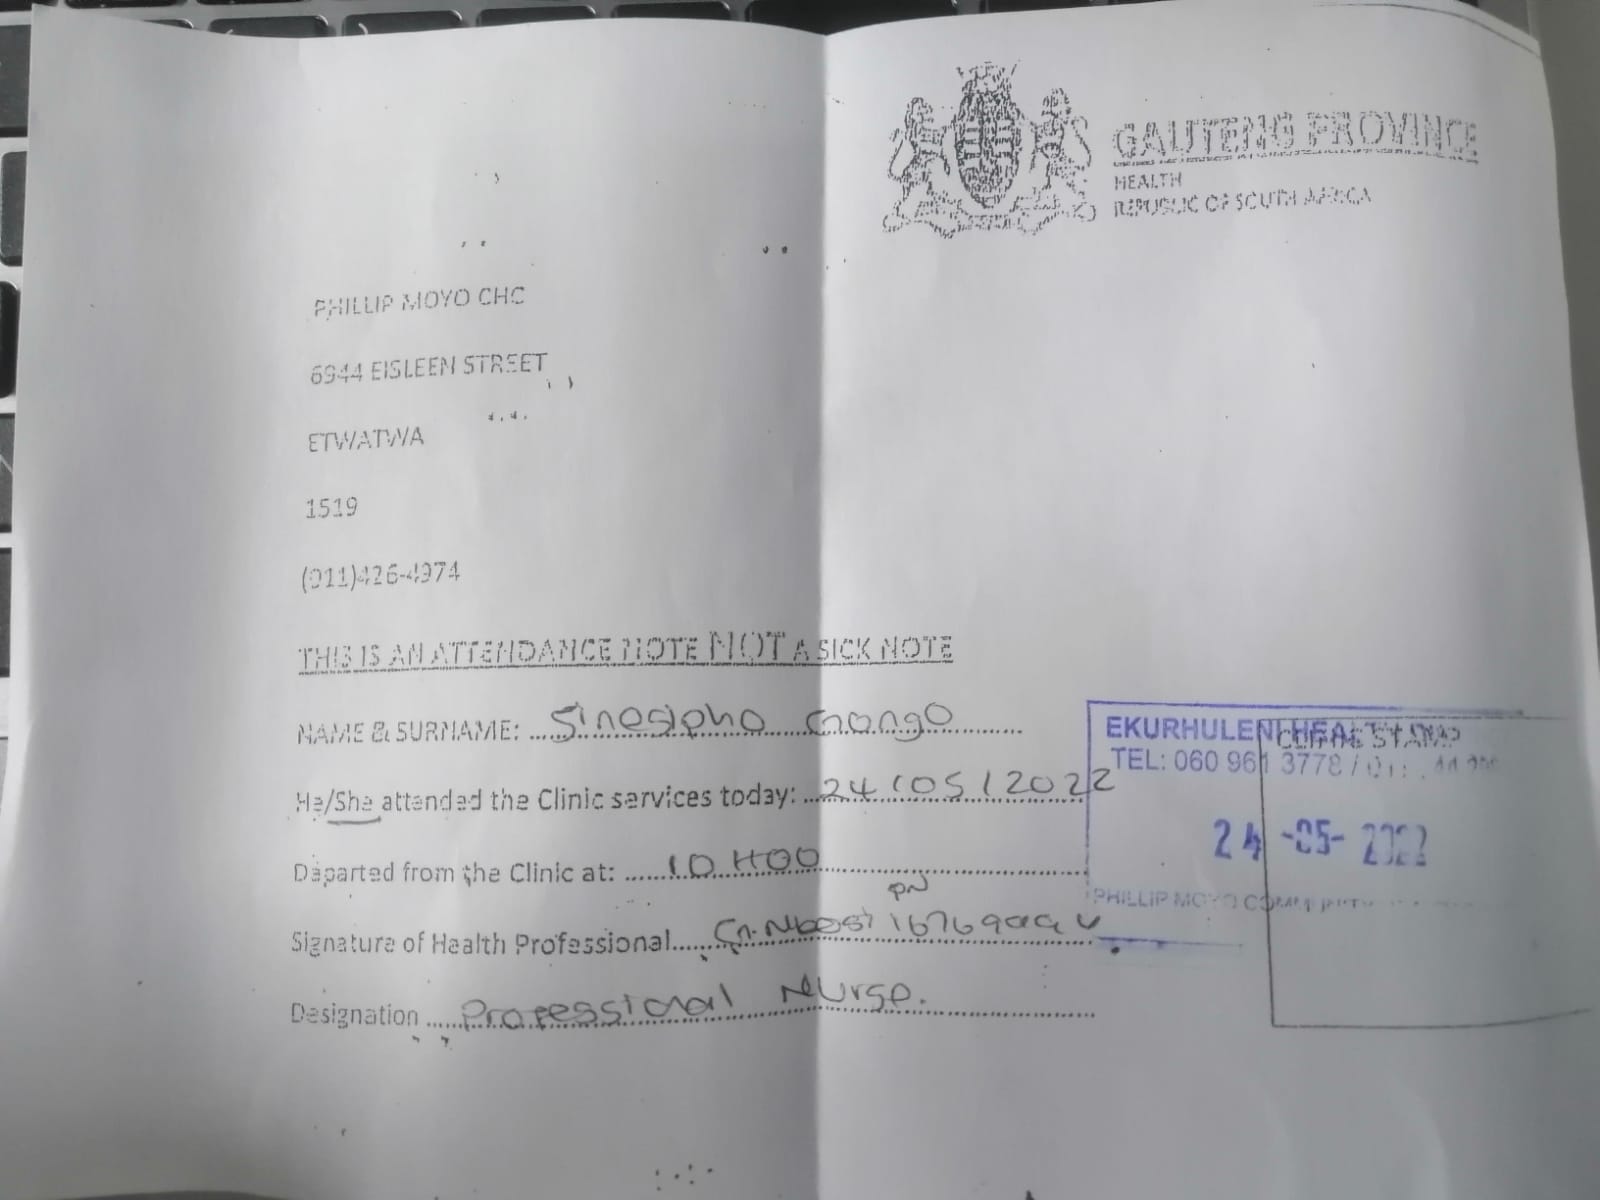 GAUTENG PROVINCE
HEALTH
REPUBLIC OF SOUTH AFRICA
PHILLIP MOYO CHC
6944 EISLEEN STREET
ETWATWA
1519
(011)426-4974
THIS IS AN ATTENDANCE NOTE NOT A SICK NOTE
NAME & SURNAME: Sinesipho
He/She attended the Clinic services today: 24/05/2022
Departed from the Clinic at: 10H00
Signature of Health Professional
PN
Designation Professional Nurse.
CLINIC STAMP
EKURHULENI HEALTH
TEL: 060 961 3778 /
24 -05- 2022
PHILLIP MOYO